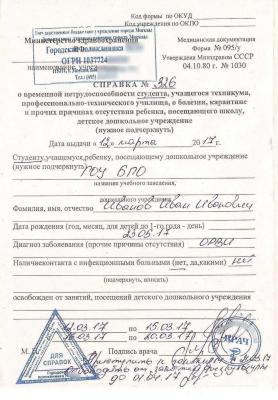 Код формы по ОКУД
Код учреждения по ОКПО
Министерство здравоохранения
Городская поликлиника
ОГРН 1037724
наименование учрежд
Медицинская документация
Форма № 095/у
Утверждена Минздравом СССР
04.10.80 г. № 1030
СПРАВКА № 326
о временной нетрудоспособности студента, учащегося техникума,
профессионально-технического училища, о болезни, карантине
и прочих причинах отсутствия ребенка, посещающего школу,
детское дошкольное учреждение
(нужное подчеркнуть)
Дата выдачи « 12 » марта 2017 г.
Студенту, учащемуся, ребенку, посещающему дошкольное учреждение
(нужное подчеркнуть) ГОУ ВПО
название учебного заведения,
дошкольного учреждения
Фамилия, имя, отчество Иванов Иван Иванович
Дата рождения (год, месяц, для детей до 1-го года - день)
Диагноз заболевания (прочие причины отсутствия) ОРВИ
Наличие контакта с инфекционными больными (нет, да, какими) нет
(подчеркнуть, вписать)
освобожден от занятий, посещений детского дошкольного учреждения
12.03.17 по 15.03.17
16.03.17 по 20.03.17
М. П.
Подпись врача
ВРАЧ
ДЛЯ СПРАВОК
Приступить к занятиям
от занятий физкультуры
до 01.04.17